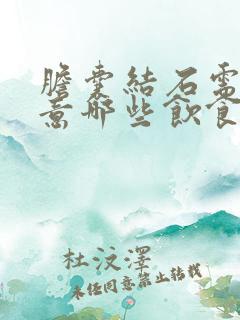 膽囊結石需
意哪些飲食
杜汶澤
未經同意禁止轉載